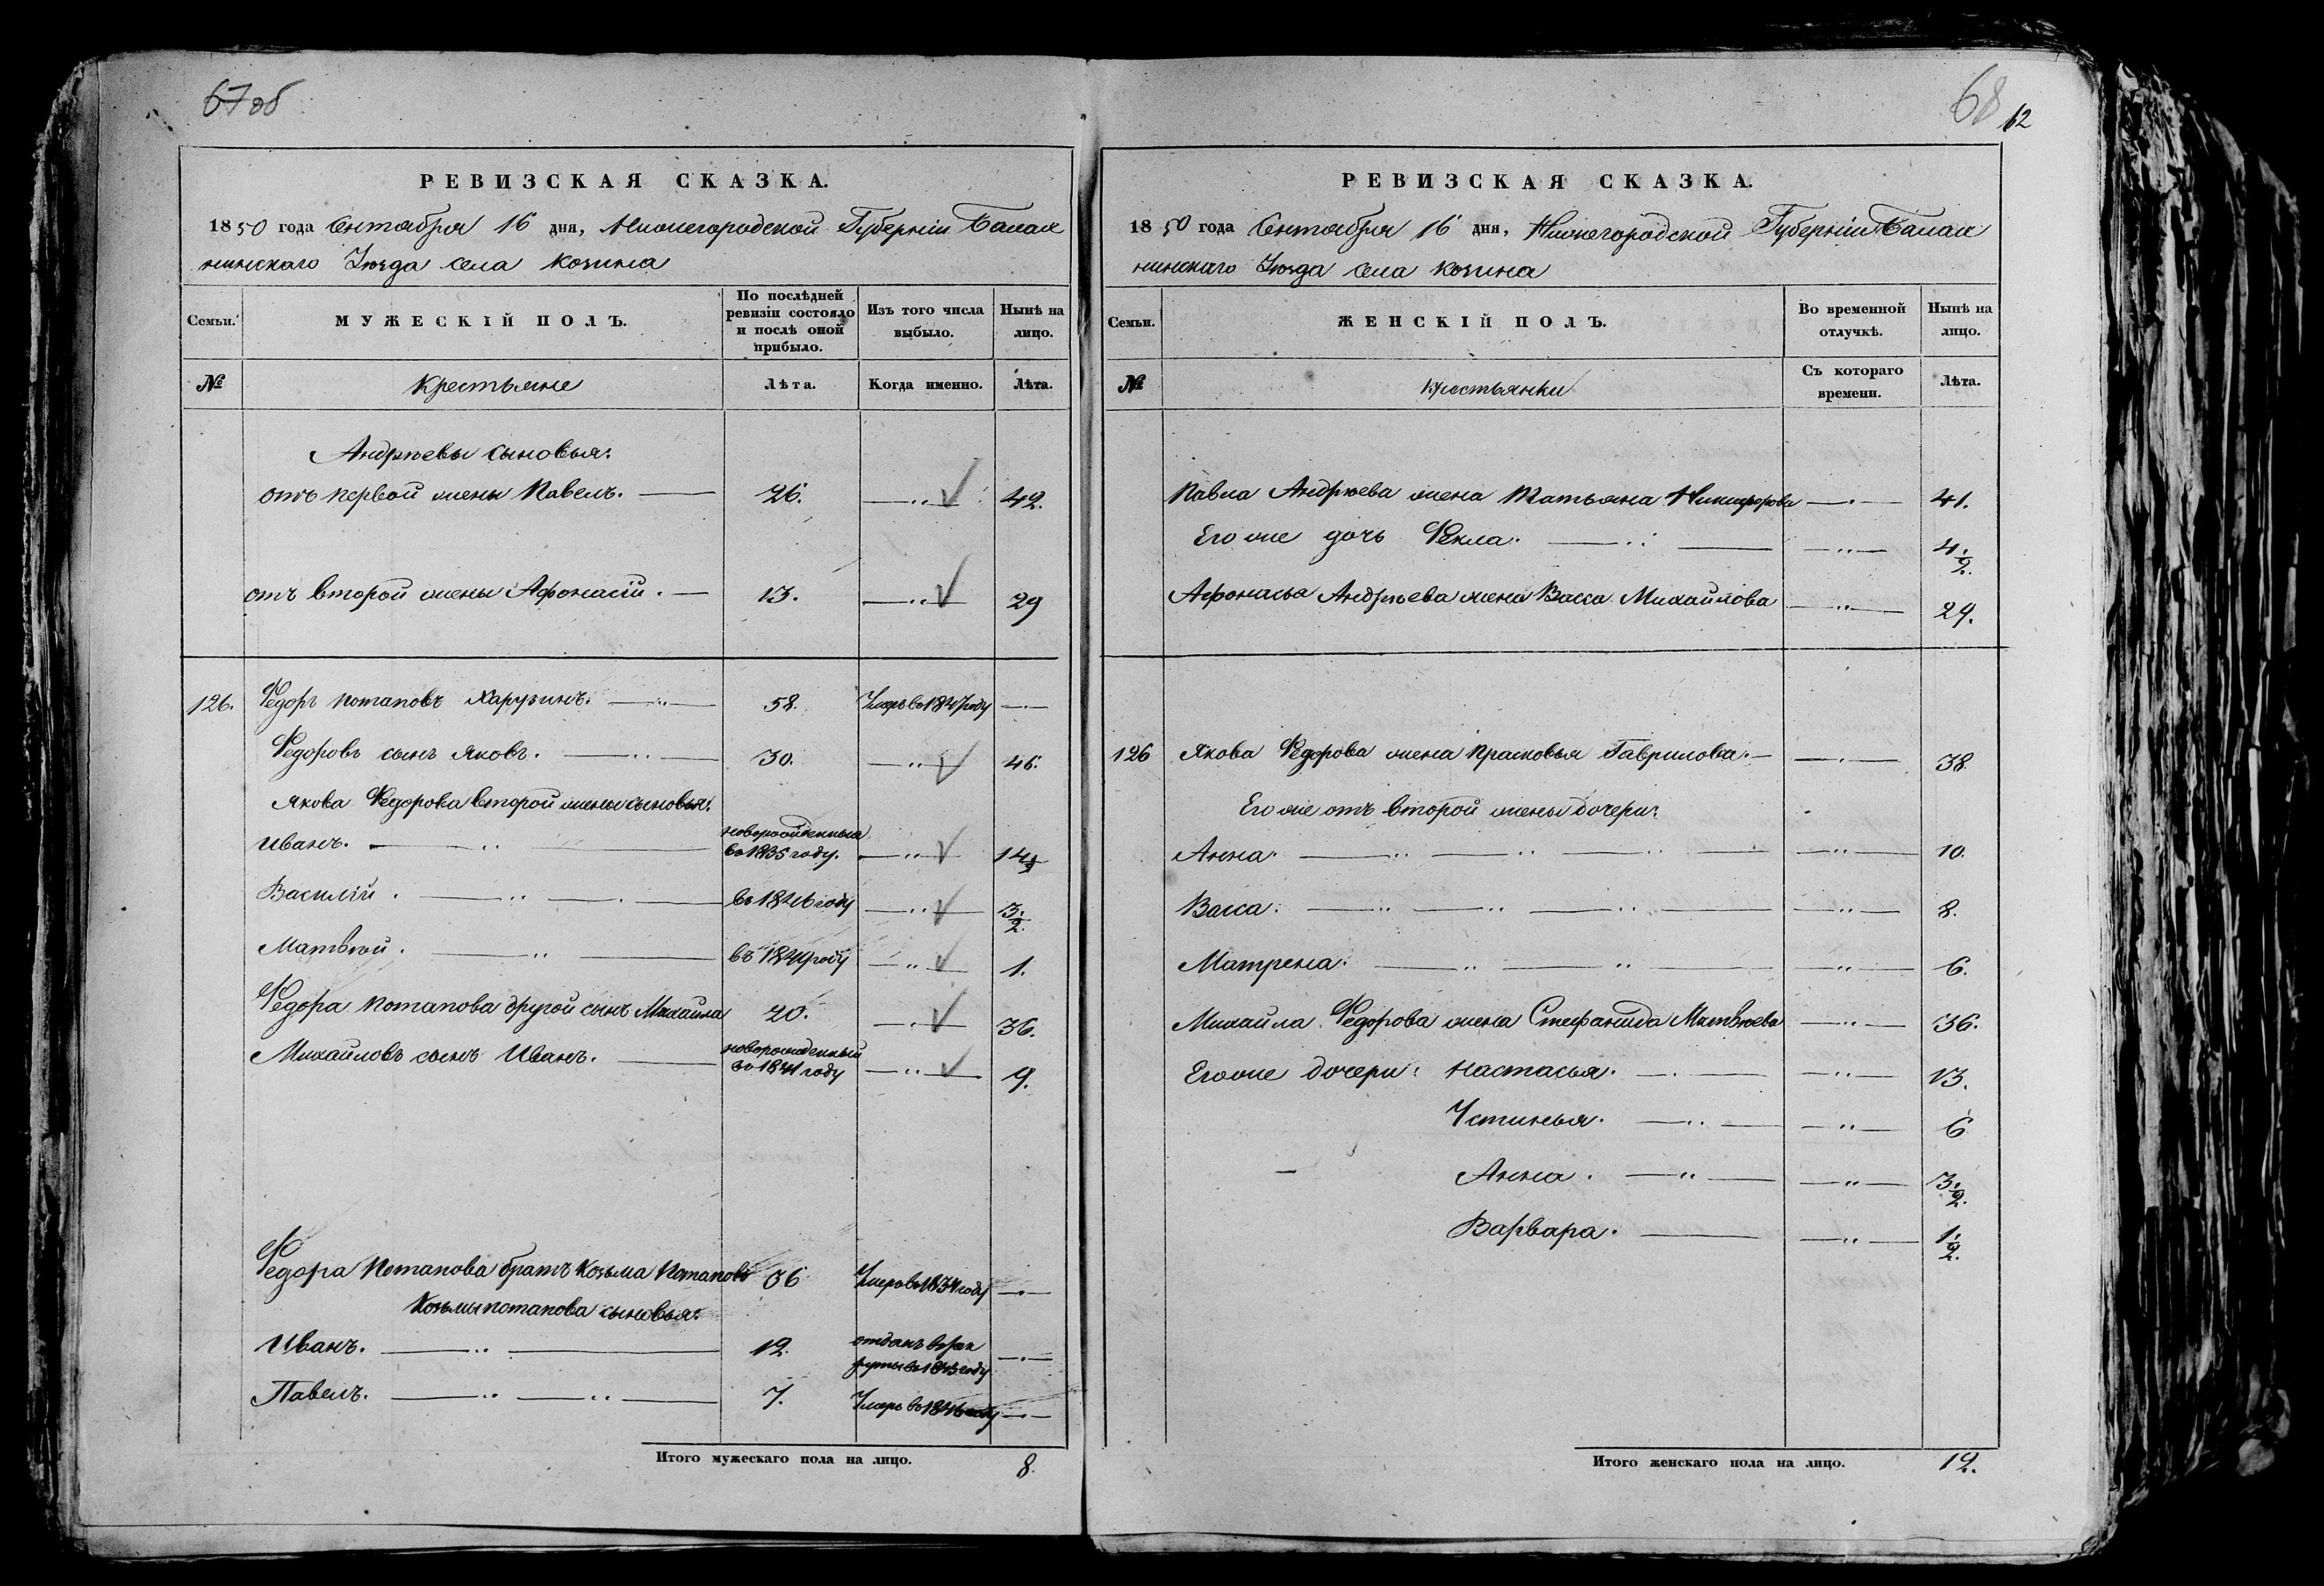 67 об
РЕВИЗСКАЯ СКАЗКА.
1850 года Сентября 16 дня, Нижегородской Губерніи Балах
нинскаго Уѣзда села Козина
Семьи.
МУЖЕСКІЙ ПОЛЪ.
По послѣдней ревизіи состояло и послѣ оной прибыло.
Изъ того числа выбыло.
Нынѣ на лицо.
№ Крестьяне Лѣта. Когда именно. Лѣта.
Андрѣевы сыновья:
отъ первой жены Павелъ. — 26. — „ — 42.
отъ второй жены Афонасій. — 13. — „ — 29
126. Федоръ Потаповъ Харузинъ. — „ — 58. Умеръ въ 1847 году — „ —
Федоровъ сынъ Яковъ. — „ — 30. — „ — 46.
Якова Федорова второй жены сыновья:
Иванъ. — „ — новорожденные въ 1835 году. — „ — 14½
Василій. — „ — въ 1846 году — „ — 3½.
Матвѣй. — „ — въ 1849 году — „ — 1.
Федора Потапова другой сынъ Михаила 20. — „ — 36.
Михайловъ сынъ Иванъ. — новорожденный въ 1841 году — „ — 9.
Федора Потапова братъ Козьма Потаповъ 36 Умеръ въ 1834 году — „ —
Козьмы Потапова сыновья:
Иванъ. — „ — 12. отданъ въ рекруты въ 1843 году — „ —
Павелъ. — „ — „ — 7. Умеръ въ 1846 году — „ —
Итого мужескаго пола на лицо. 8.
68
62
РЕВИЗСКАЯ СКАЗКА.
1850 года Сентября 16 дня, Нижегородской Губерніи Балах
нинскаго Уѣзда села Козина
Семьи.
ЖЕНСКІЙ ПОЛЪ.
Во временной отлучкѣ.
Нынѣ на лицо.
№ Крестьянки Съ котораго времени. Лѣта.
Павла Андрѣева жена Татьяна Никифорова — „ — 41.
Его же дочь Фекла. — „ — — „ — 4½.
Афонасья Андрѣева жена Васса Михайлова — „ — 24.
126 Якова Федорова жена Прасковья Гаврилова. — — „ — 38.
Его же отъ второй жены дочери:
Анна. — „ — „ — „ — — „ — 10.
Васса. — „ — „ — „ — — „ — 8.
Матрена. — „ — „ — — „ — 6.
Михайла Федорова жена Стефанида Матвѣева — „ — 36.
Его же дочери: Настасья. — „ — — „ — 13.
Устинья. — „ — — „ — 6
Анна. — „ — — „ — 3½.
Варвара. — — „ — 1½.
Итого женскаго пола на лицо. 12.